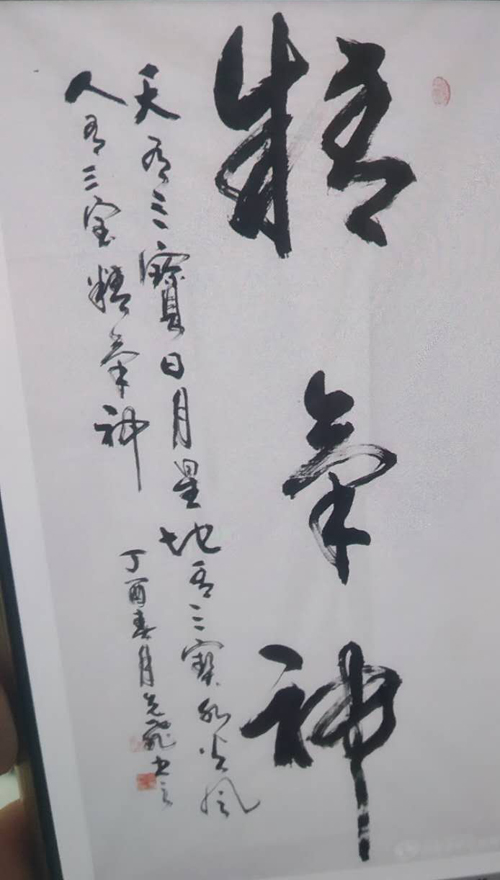 精氣神
天有三寳日月星地有三寳水火風
人有三宝精氣神
丁酉春月